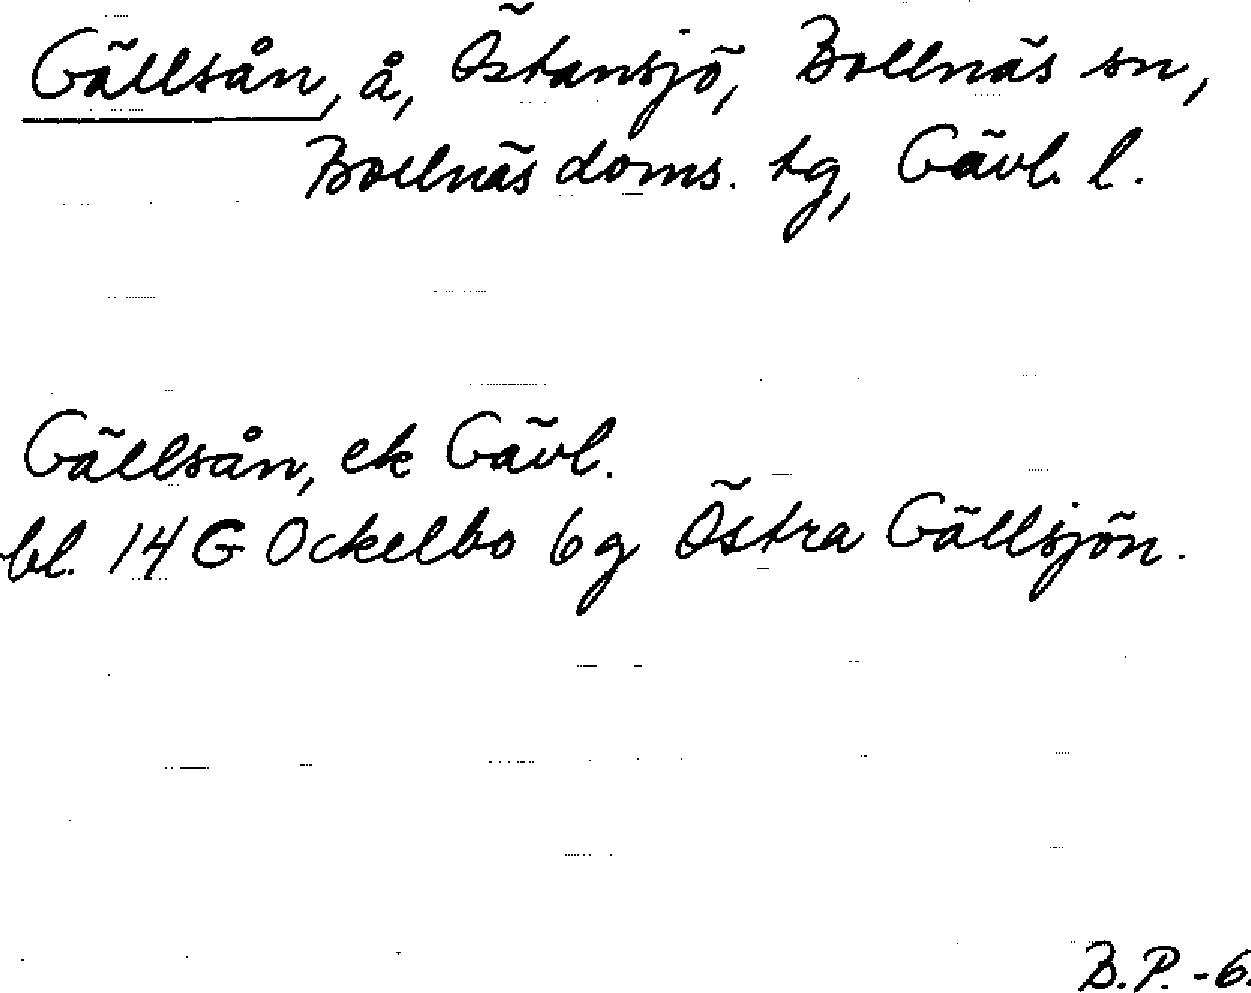 Gällsån, å, Östansjö, Bollnäs sn,
Bollnäs doms. tg, Gävl. l.
Gällsån, ek Gävl.
bl. 14 G Ockelbo 6 g Östra Gällsjön.
B.P. -6.